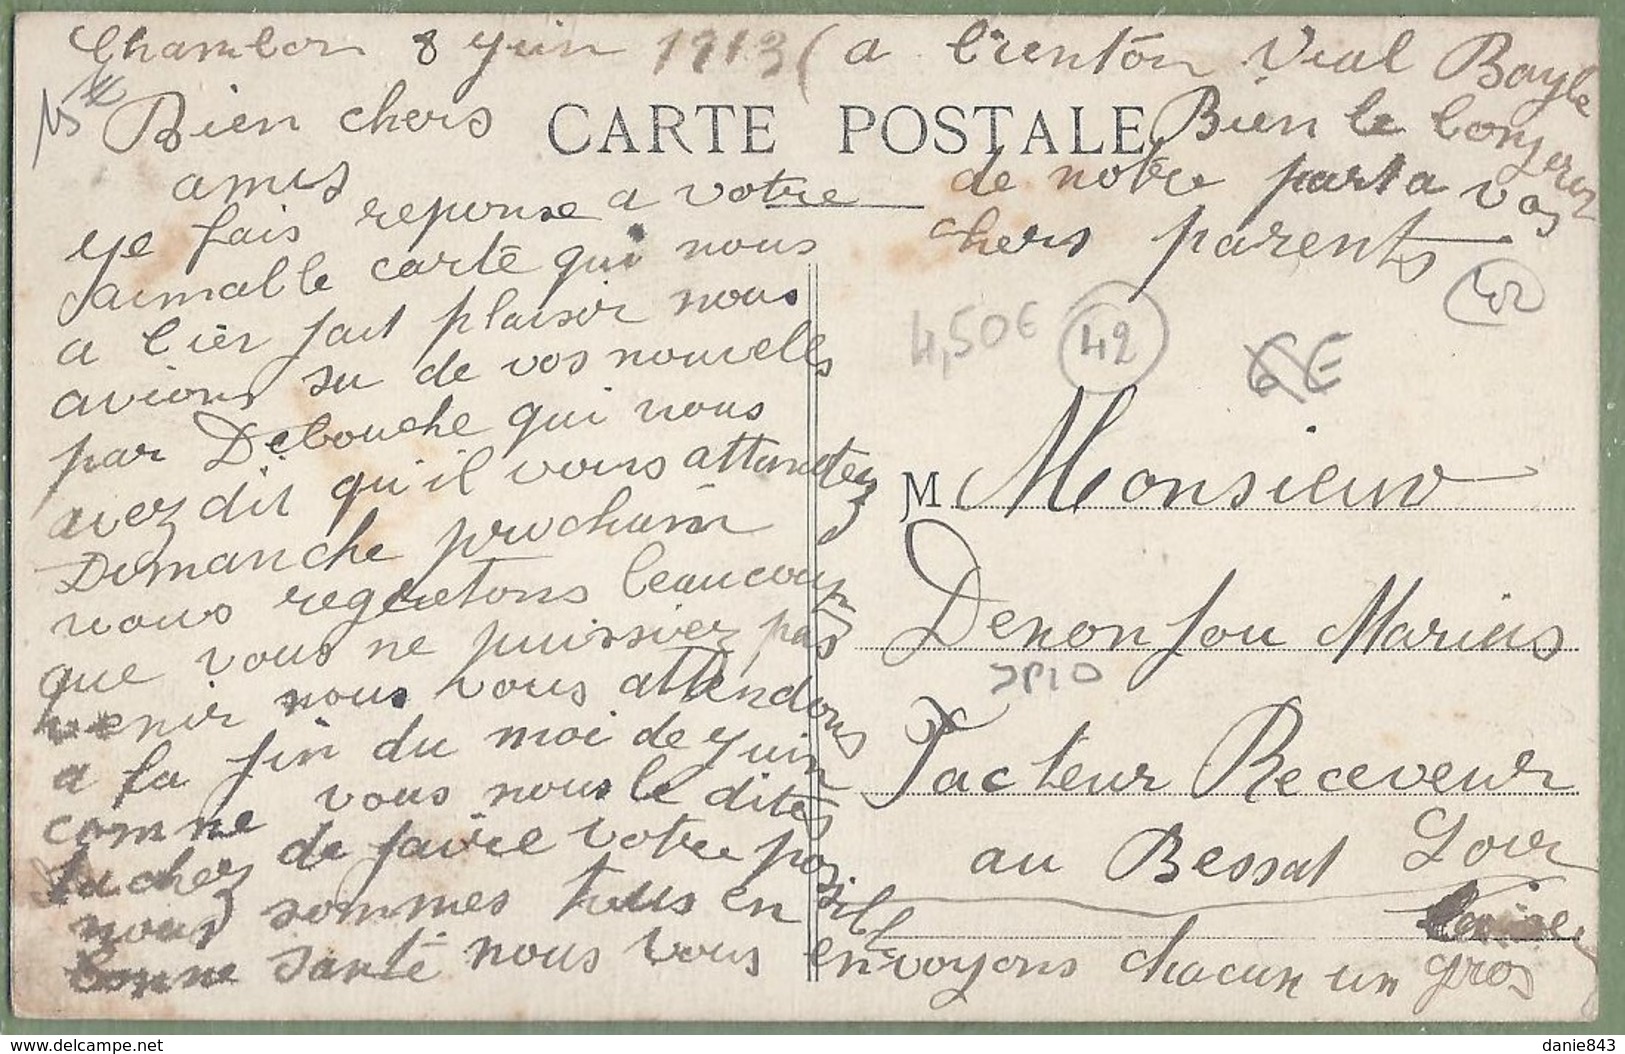 Chambon 8 Juin 1913 (a
Bien chers
amis
Je fais reponse a votre
aimable carte qui nous
a bien fait plaisir nous
avions su de vos nouvelles
par Debouche qui nous
avez dit qu'il vous attendez
Dimanche prochain
nous regretons beaucoup
que vous ne puissiez pas
venir nous vous attendons
a la fin du moi de Juin
comme vous nous le dites
tachez de faire votre possible
nous sommes tous en
bonne santé nous vous envoyons chacun un gros
Vial Bayle
Bien le bonjour
de notre part a vos
chers parents
CARTE POSTALE
4,50€
42
42
6€
M Monsieur
Denonfou Marius
JPIO
Facteur Receveur
au Bessat Loire
Loire
www.delcampe.net
danie843